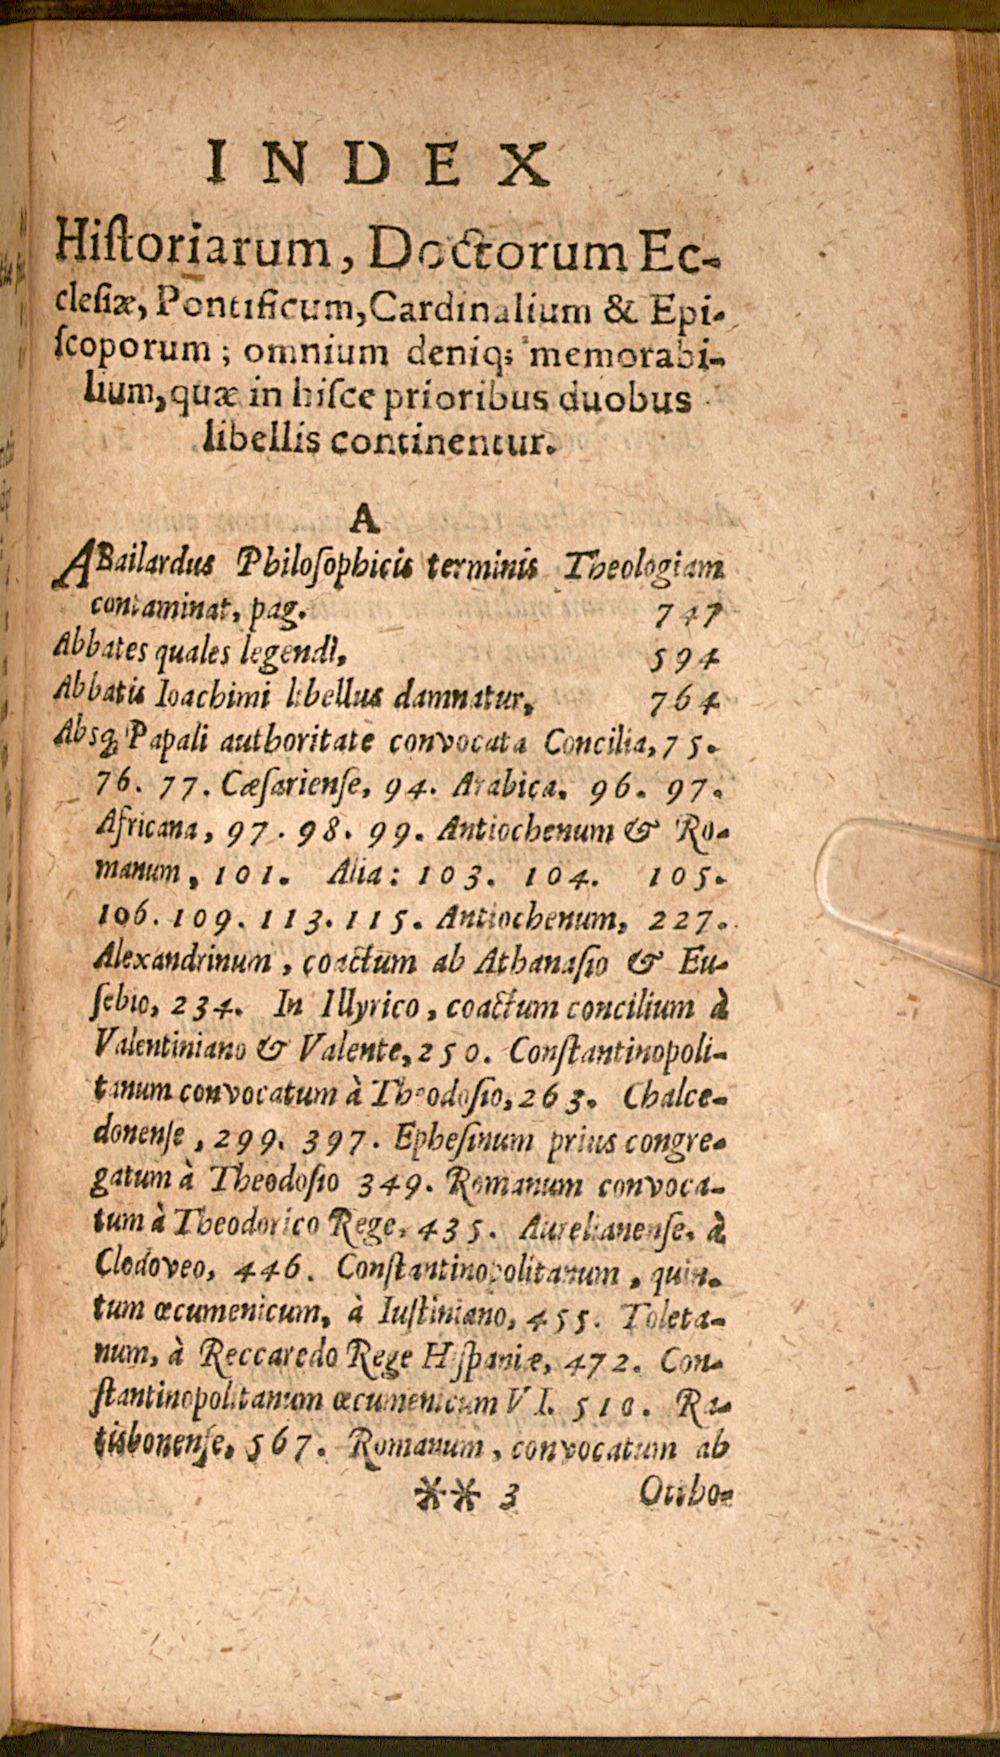 INDEX
Hiſtoriarum, Doctorum Ec-
cleſiæ, Pontificum, Cardinalium & Epi-
ſcoporum; omnium deniq; memorabi-
lium, quæ in hiſce prioribus duobus
libellis continentur.
A
ABailardus Philoſophicis terminis Theologiam
contaminat, pag. 747
Abbates quales legendi, 594
Abbatis Ioachimi libellus damnatur, 764
Absq; Papali authoritate convocata Concilia, 75.
76. 77. Cæſarienſe, 94. Arabica. 96. 97.
Africana, 97. 98. 99. Antiochenum & Ro-
manum, 101. Alia: 103. 104. 105.
106. 109. 113. 115. Antiochenum, 227.
Alexandrinum, coactum ab Athanaſio & Eu-
ſebio, 234. In Illyrico, coactum concilium à
Valentiniano & Valente, 250. Conſtantinopoli-
tanum convocatum à Theodoſio, 263. Chalce-
donenſe, 299. 397. Epheſinum prius congre-
gatum à Theodoſio 349. Romanum convoca-
tum à Theodorico Rege, 435. Aurelianenſe, à
Clodoveo, 446. Conſtantinopolitanum, quin-
tum œcumenicum, à Iuſtiniano, 455. Toleta-
num, à Reccaredo Rege Hiſpaniæ, 472. Con-
ſtantinopolitanum œcumenicum VI. 510. Ra-
tisbonenſe, 567. Romanum, convocatum ab
** 3 Ottho-